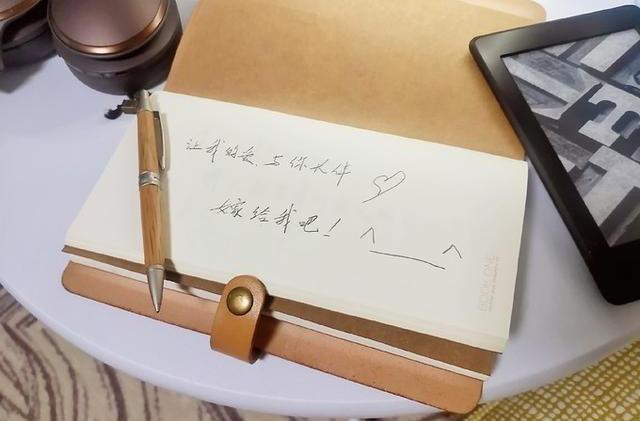 让我的爱、与你长伴♡
嫁给我吧！^___^
BOOK ONE